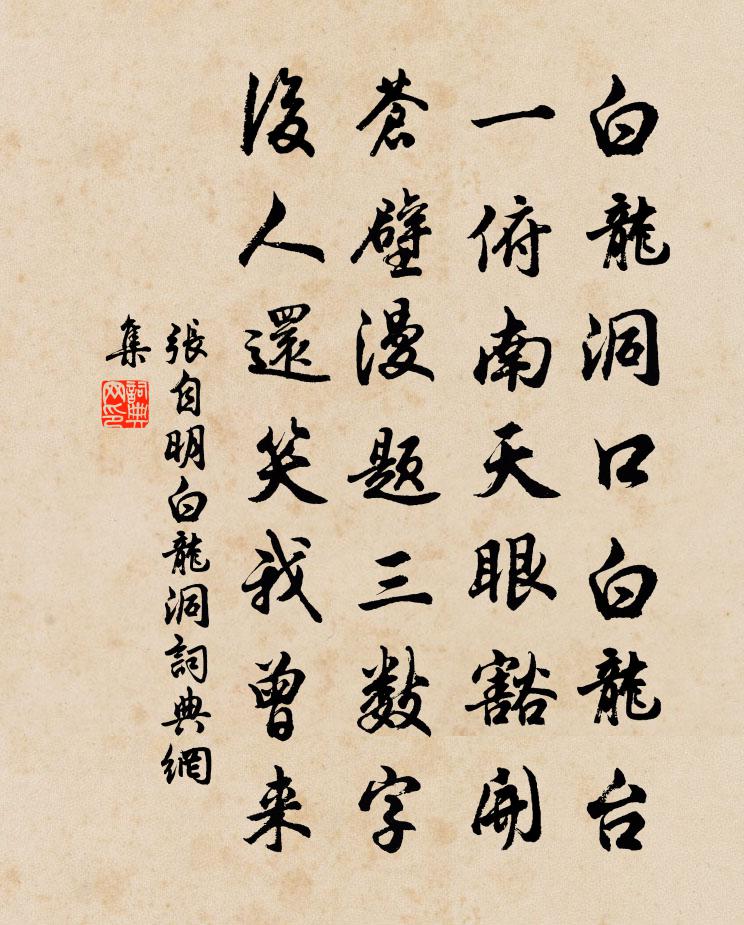 白龍洞口白龍台
一俯南天眼豁開
蒼壁漫题三数字
後人還笑我曾来
張自明白龍洞詞典網
集
詞典
网印